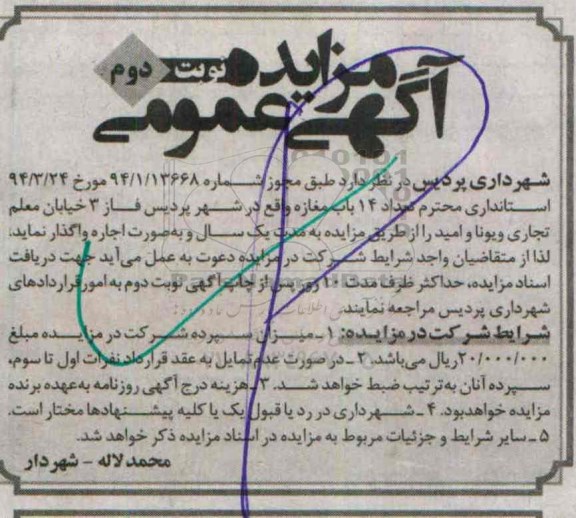 آگهی مزایده عمومی
نوبت دوم
شهرداری پردیس در نظر دارد طبق مجوز شماره ۹۴/۱/۱۳۶۶۸ مورخ ۹۴/۳/۲۴
استانداری محترم تعداد ۱۴ باب مغازه واقع در شهر پردیس فاز ۳ خیابان معلم
تجاری ویونا و امید را از طریق مزایده به مدت یک سال و به‌صورت اجاره واگذار نماید،
لذا از متقاضیان واجد شرایط شرکت در مزایده دعوت به عمل می‌آید جهت دریافت
اسناد مزایده، حداکثر ظرف مدت ۱۰ روز پس از چاپ آگهی نوبت دوم به امور قراردادهای
شهرداری پردیس مراجعه نمایند.
شرایط شرکت در مزایده: ۱ـ میزان سپرده شرکت در مزایده مبلغ
۲۰/۰۰۰/۰۰۰ریال می‌باشد. ۲ـ در صورت عدم تمایل به عقد قرارداد نفرات اول تا سوم،
سپرده آنان به ترتیب ضبط خواهد شد. ۳ـ هزینه درج آگهی روزنامه به‌عهده برنده
مزایده خواهدبود. ۴ ـ شهرداری در رد یا قبول یک یا کلیه پیشنهادها مختار است.
۵ ـ سایر شرایط و جزئیات مربوط به مزایده در اسناد مزایده ذکر خواهد شد.
محمد لاله - شهردار